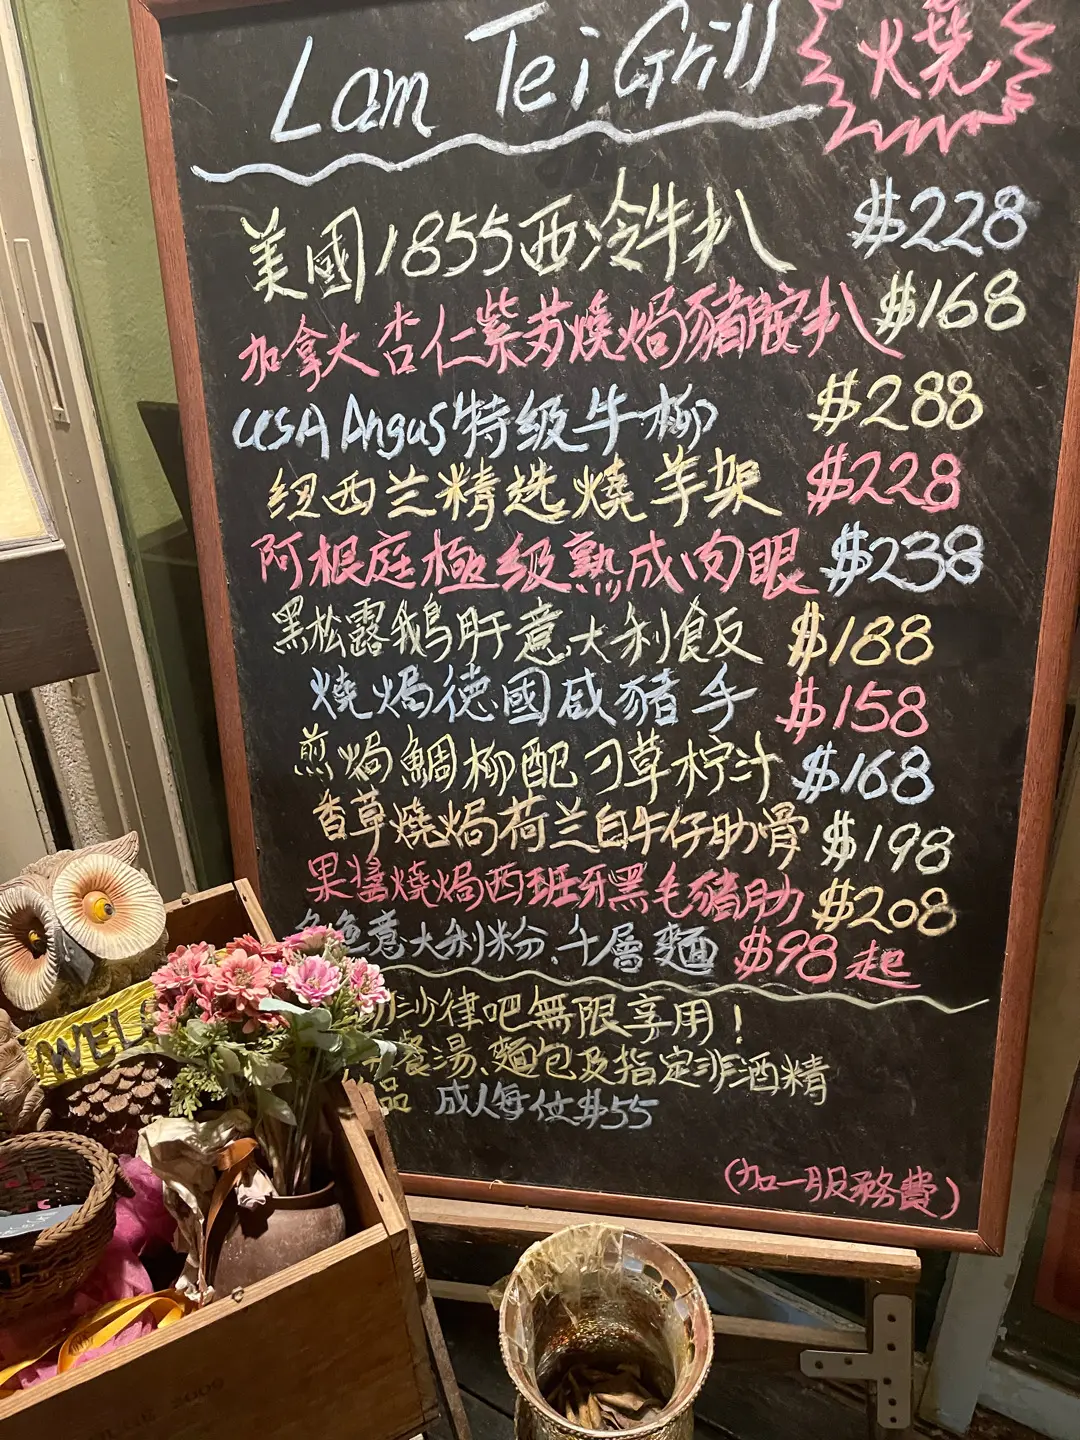 Lam Tei Grill 燒
美國1855西冷牛扒 $228
加拿大杏仁紫苏燒焗豬鞍扒 $168
USA Angus特级牛柳 $288
纽西兰精选燒羊架 $228
阿根庭極级熟成肉眼 $238
黑松露鵝肝意大利飯 $188
燒焗德國咸豬手 $158
煎焗鯛柳配刁草柠汁 $168
香草燒焗荷兰白牛仔肋骨 $198
果醬燒焗西班牙黑毛豬肋 $208
色意大利粉、千層麵 $98起
沙律吧無限享用!
餐湯、麵包及指定非酒精
品 成人每位$55
(加一服務費)
WEL